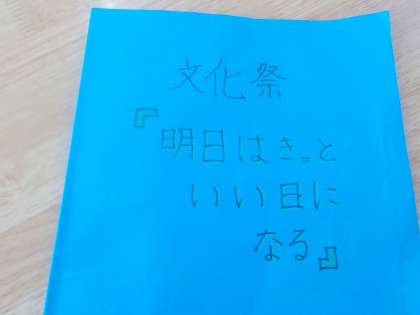 文化祭
『明日はきっと
いい日に
なる』